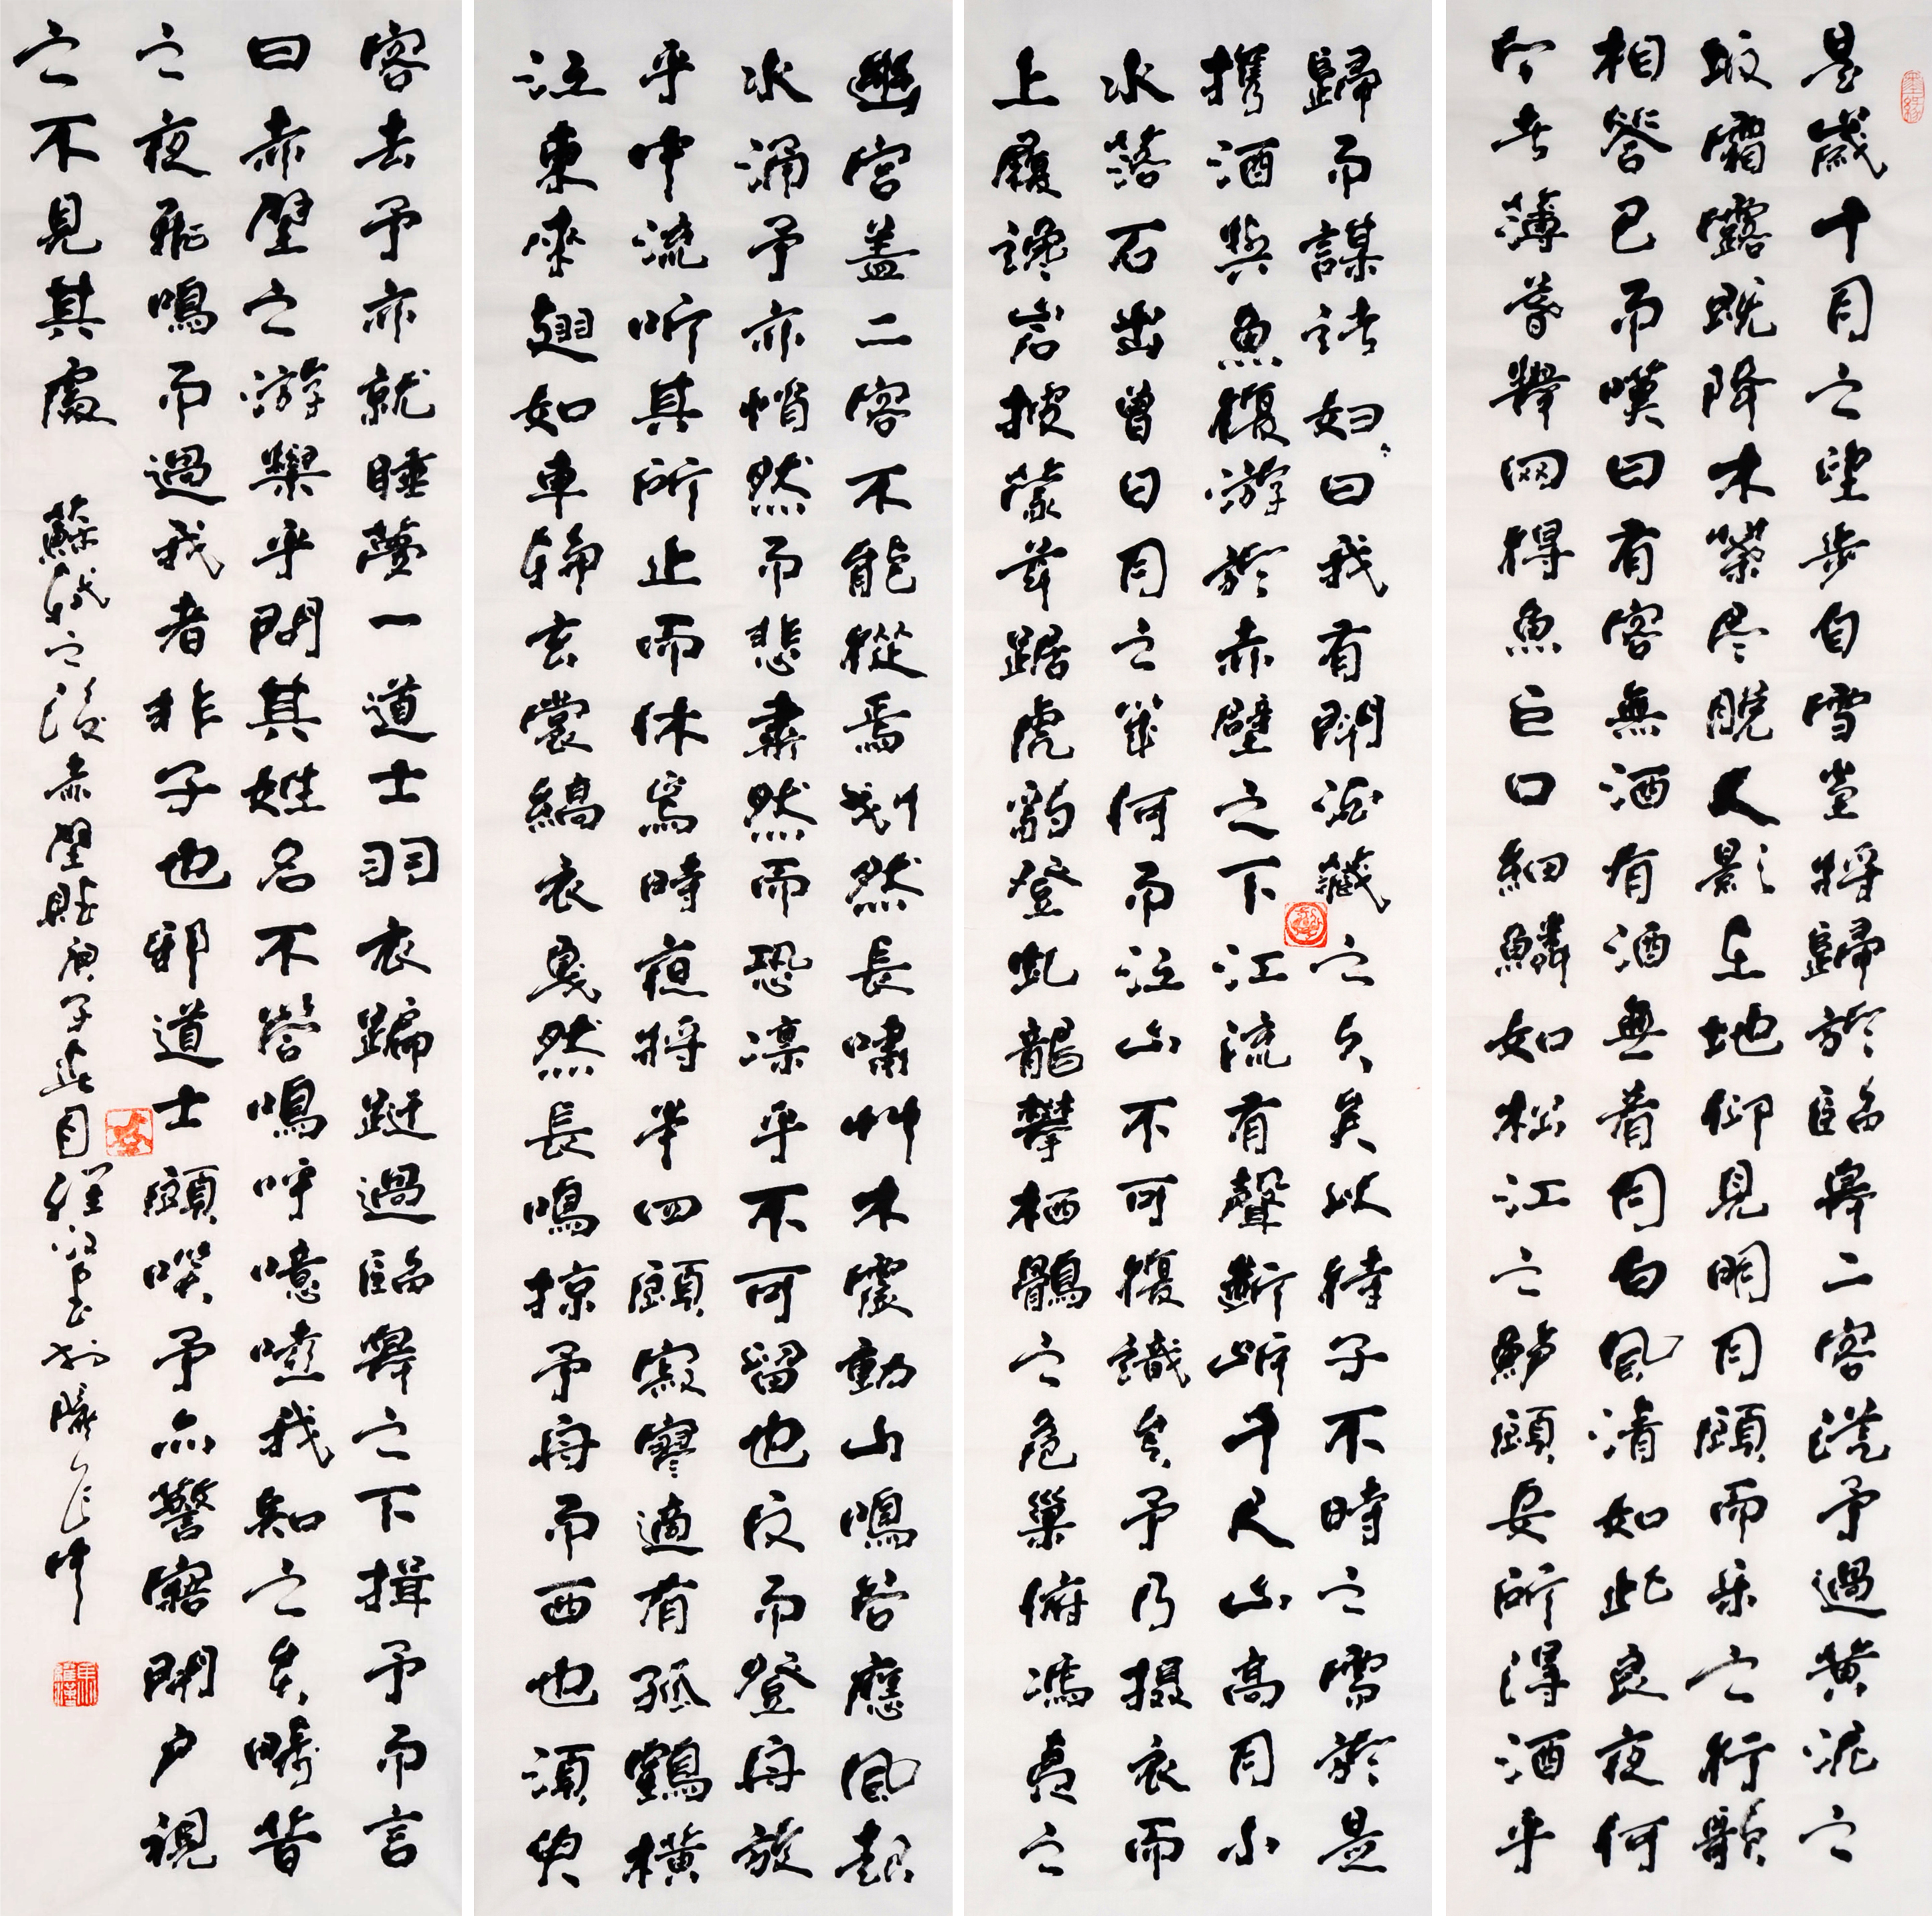 是歲十月之望步自雪堂將歸於臨皋二客從予過黃泥之
坂霜露既降木葉尽脫人影在地仰見明月顧而乐之行歌
相答已而嘆曰有客無酒有酒無肴月白風清如此良夜何
今者薄暮舉网得魚巨口細鱗如松江之鱸顧安所得酒乎
歸而謀諸妇曰我有鬥酒藏之久矣以待子不時之需於是
攜酒與魚復游於赤壁之下江流有聲斷岸千尺山高月小
水落石出曾日月之幾何而江山不可復識矣予乃攝衣而
上履巉岩披蒙茸踞虎豹登虬龍攀栖鶻之危巢俯馮夷之
幽宮盖二客不能從焉劃然長嘯艸木震動山鳴谷應風起
水涌予亦悄然而悲肅然而恐凜乎不可留也反而登舟放
乎中流听其所止而休焉時夜將半四顧寂寥適有孤鶴橫
江東來翅如車輪玄裳縞衣戛然長鳴掠予舟而西也須臾
客去予亦就睡夢一道士羽衣蹁躚過臨皋之下揖予而言
曰赤壁之游樂乎問其姓名不答鳴呼噫嘻我知之矣疇昔
之夜飛鳴而過我者非子也邪道士顧笑予亦驚寤開戶視
之不見其處
蘇軾之後赤壁賦庚子